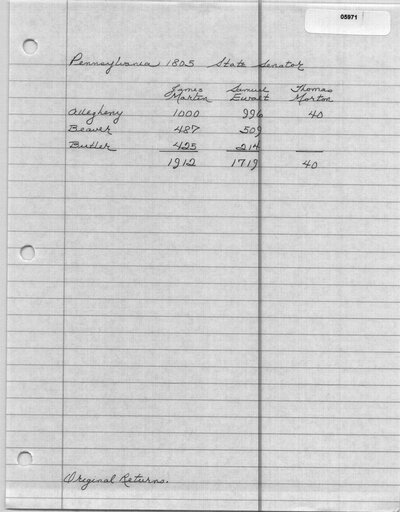 05971
Pennsylvania 1805 State Senator
James Samuel Thomas
Martin Ewalt Morton
Allegheny 1000 996 40
Beaver 487 509
Butler 425 214
1912 1719 40
Original Returns.